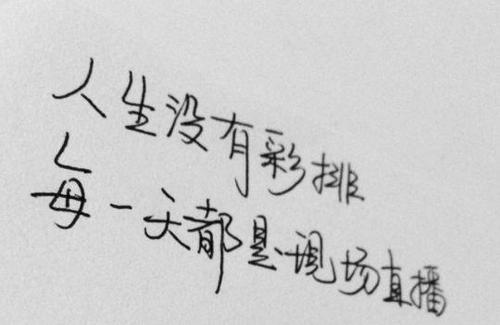 人生没有彩排
每一天都是现场直播